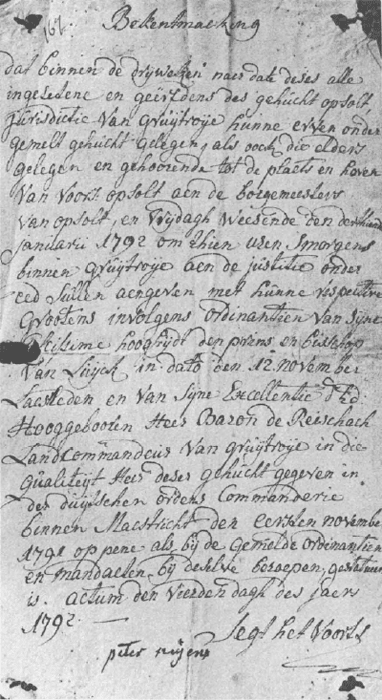 162. Bekentmacking
dat binnen de drij weken naer date deses alle
ingesetene en geërfdens des gehucht opsolt
jurisdictie van gruijtroije hunne erven onder
gemelt gehucht gelegen, als oock die elders
gelegen en gehoorende tot de plaets en hoven
van voort opsolt aen de borgemeesters
van opsolt, en vrijdagh weesende den
januarii 1792 om thien uren smorgens
binnen gruijtroije aen de justitie onder
eed sullen aengeven met hunne respective
grootens involgens ordinantien van sijne
hoogheijdt den prins en bischop
van Luijck in dato den 12. november
laestleden en van sijne Excellentie d'h.
Hooggebooren Heer Baron de Reischach
Landcommandeur van gruijtroije in die
qualiteijt Heer deses gehucht gegeven in
der duijtschen ordens Commanderie
binnen Maestricht den eersten november
1791 op pene als bij de gemelde ordinantien
en mandaeten bij deselve beroepen, gestatueert
is. actum den vierden dagh des jaers
1792. — segt het voorts
peter